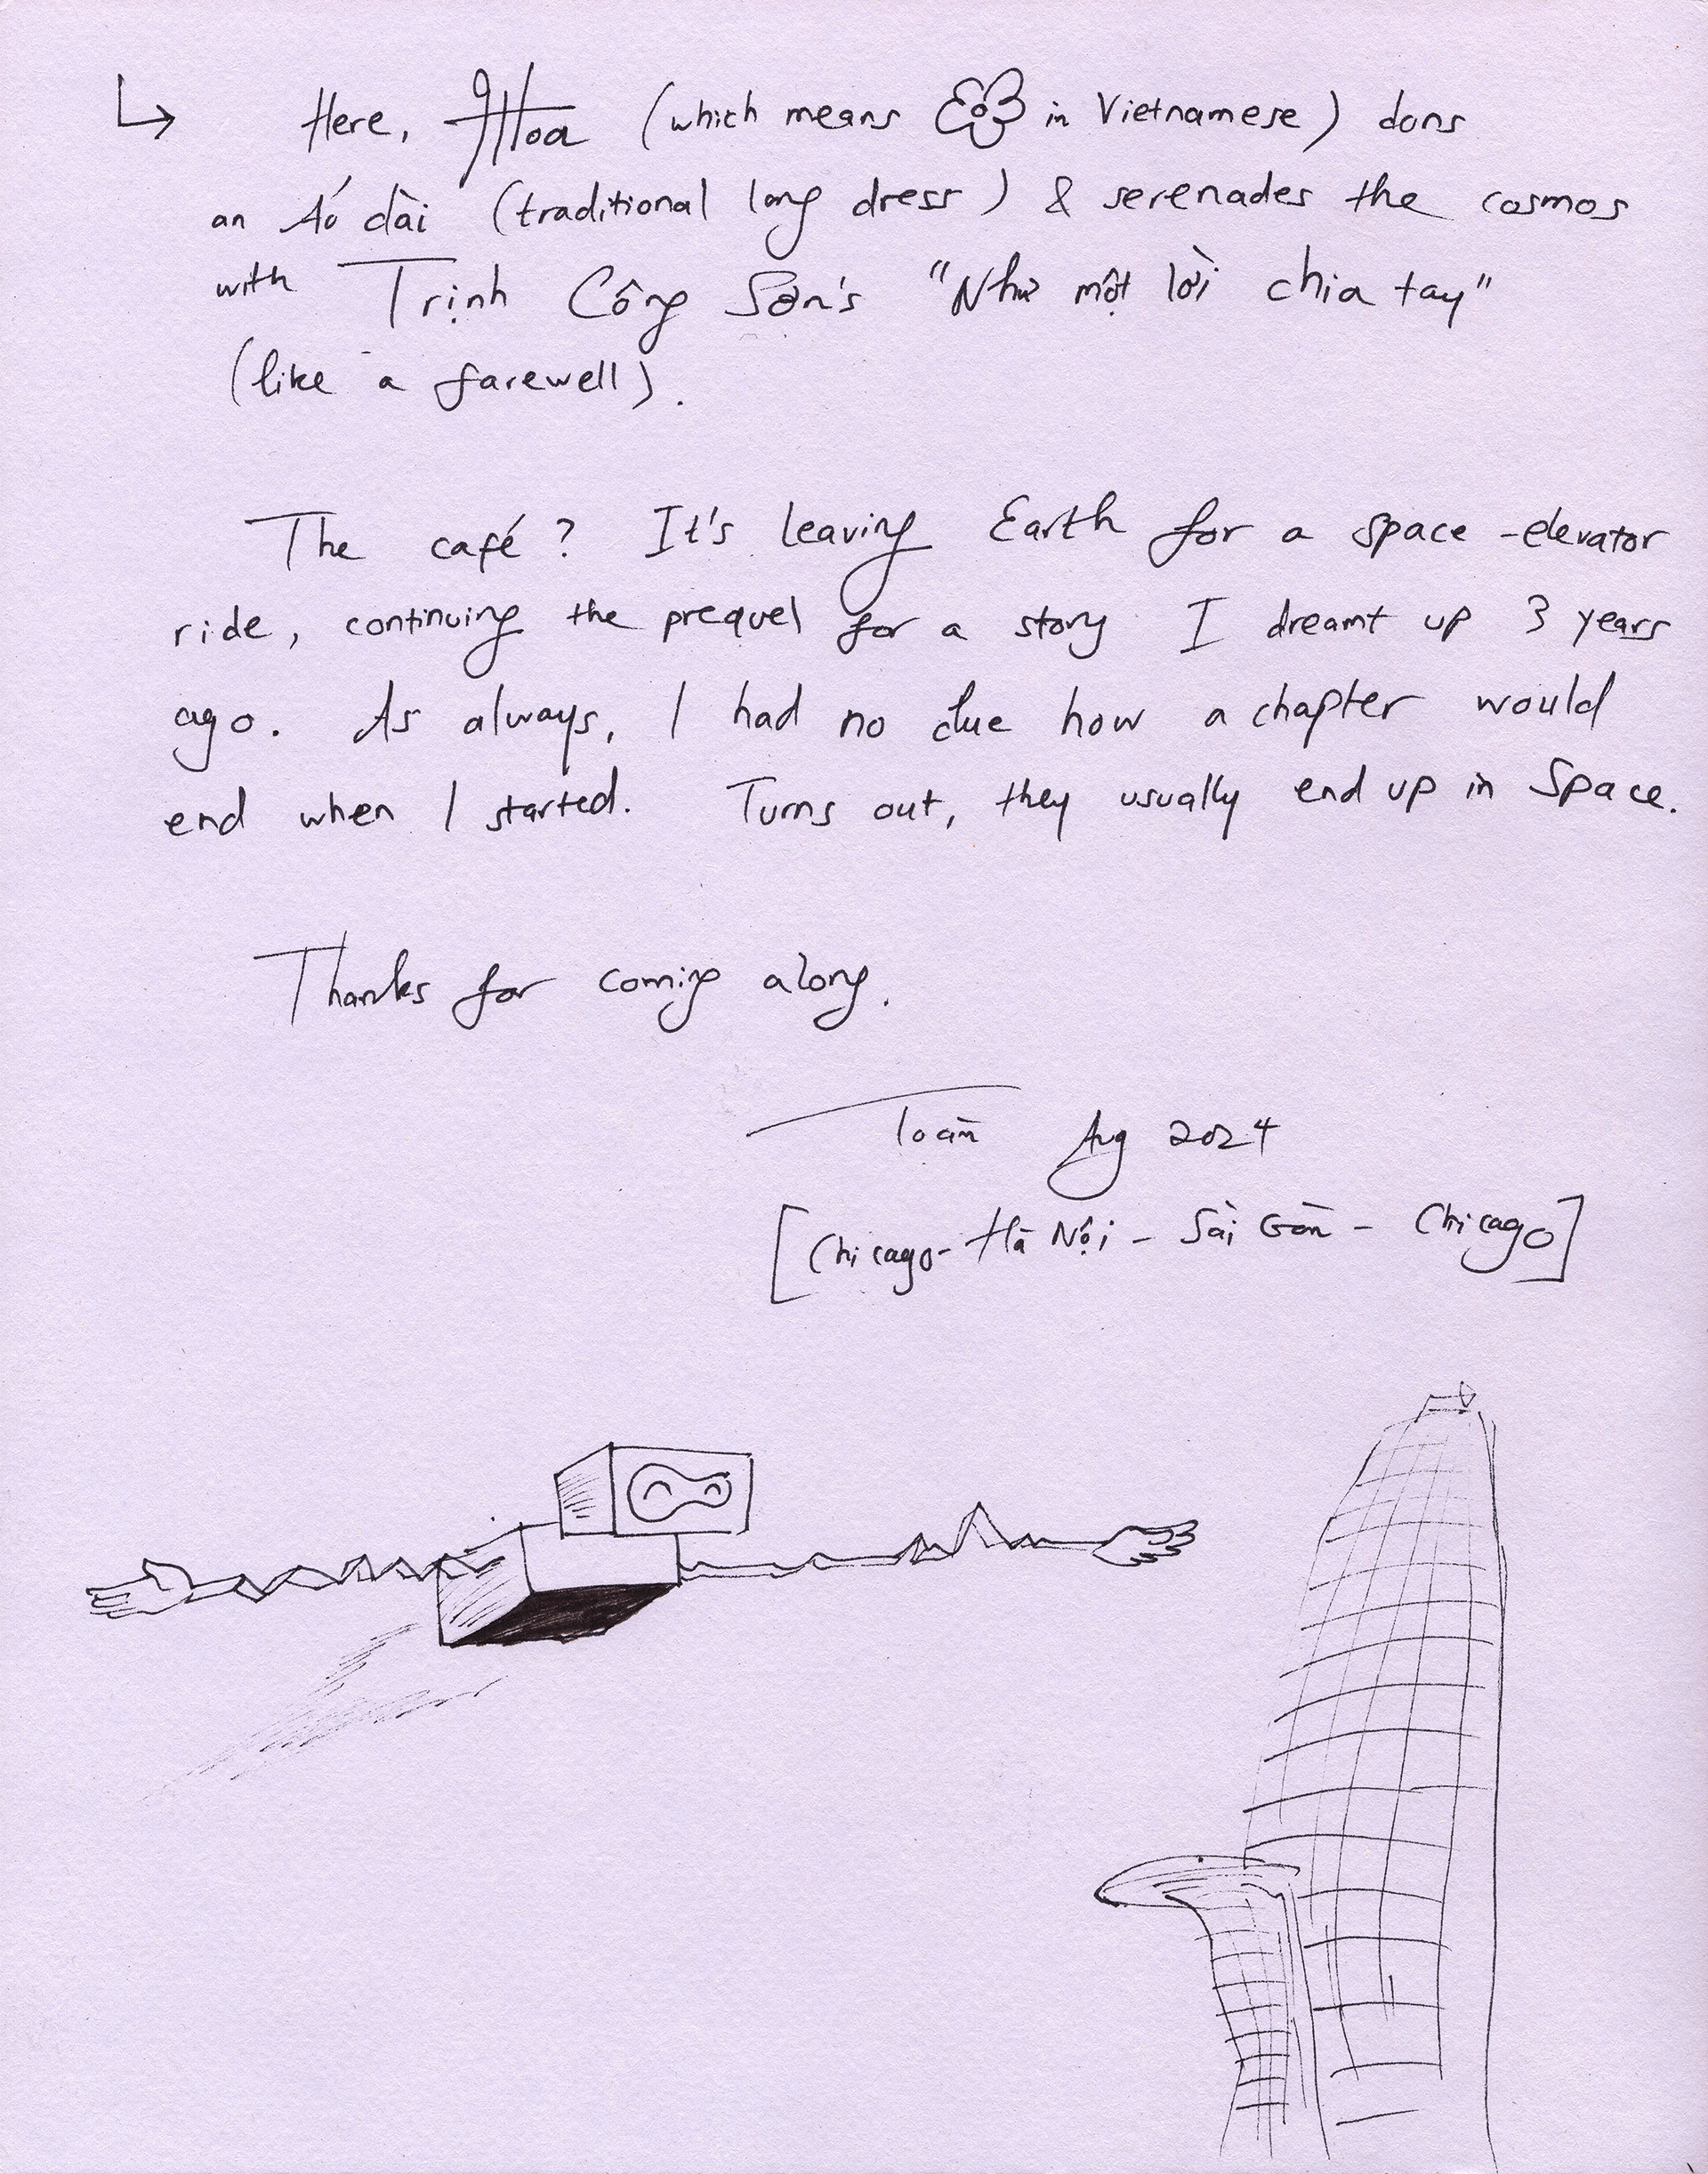 Here, Hoa (which means in Vietnamese) dons
an Áo dài (traditional long dress) & serenades the cosmos
with Trịnh Công Sơn's "Như một lời chia tay"
(like a farewell).
The café? It's leaving Earth for a space-elevator
ride, continuing the prequel for a story I dreamt up 3 years
ago. As always, I had no clue how a chapter would
end when I started. Turns out, they usually end up in Space.
Thanks for coming along.
Toàn Aug 2024
[Chicago - Hà Nội - Sài Gòn - Chicago]